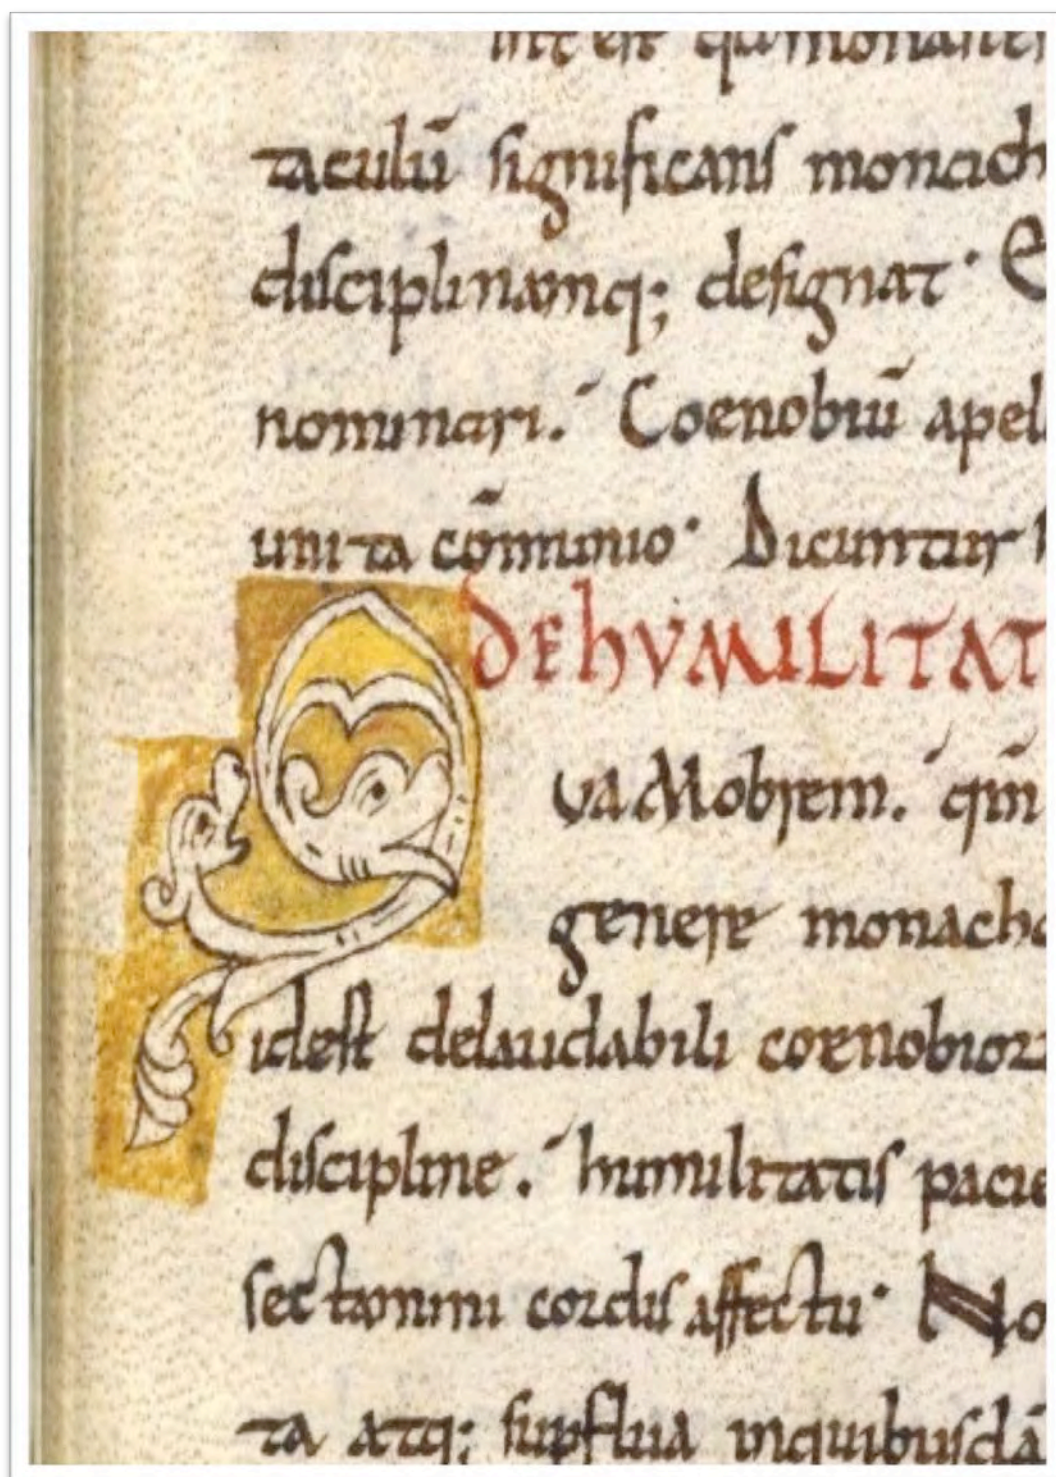 taculū significans monach
disciplinamq; designat· E
nominari. Coenobiū apel
unita cōmunio· Dicuntur
DEHVMILITAT
QuaMobrem. qm̄
genere monacho
idest delaudabili coenobior
discipline. humilitatis pacie
sectamini cordis affectu· No
ta atq; supflua inquibusdā